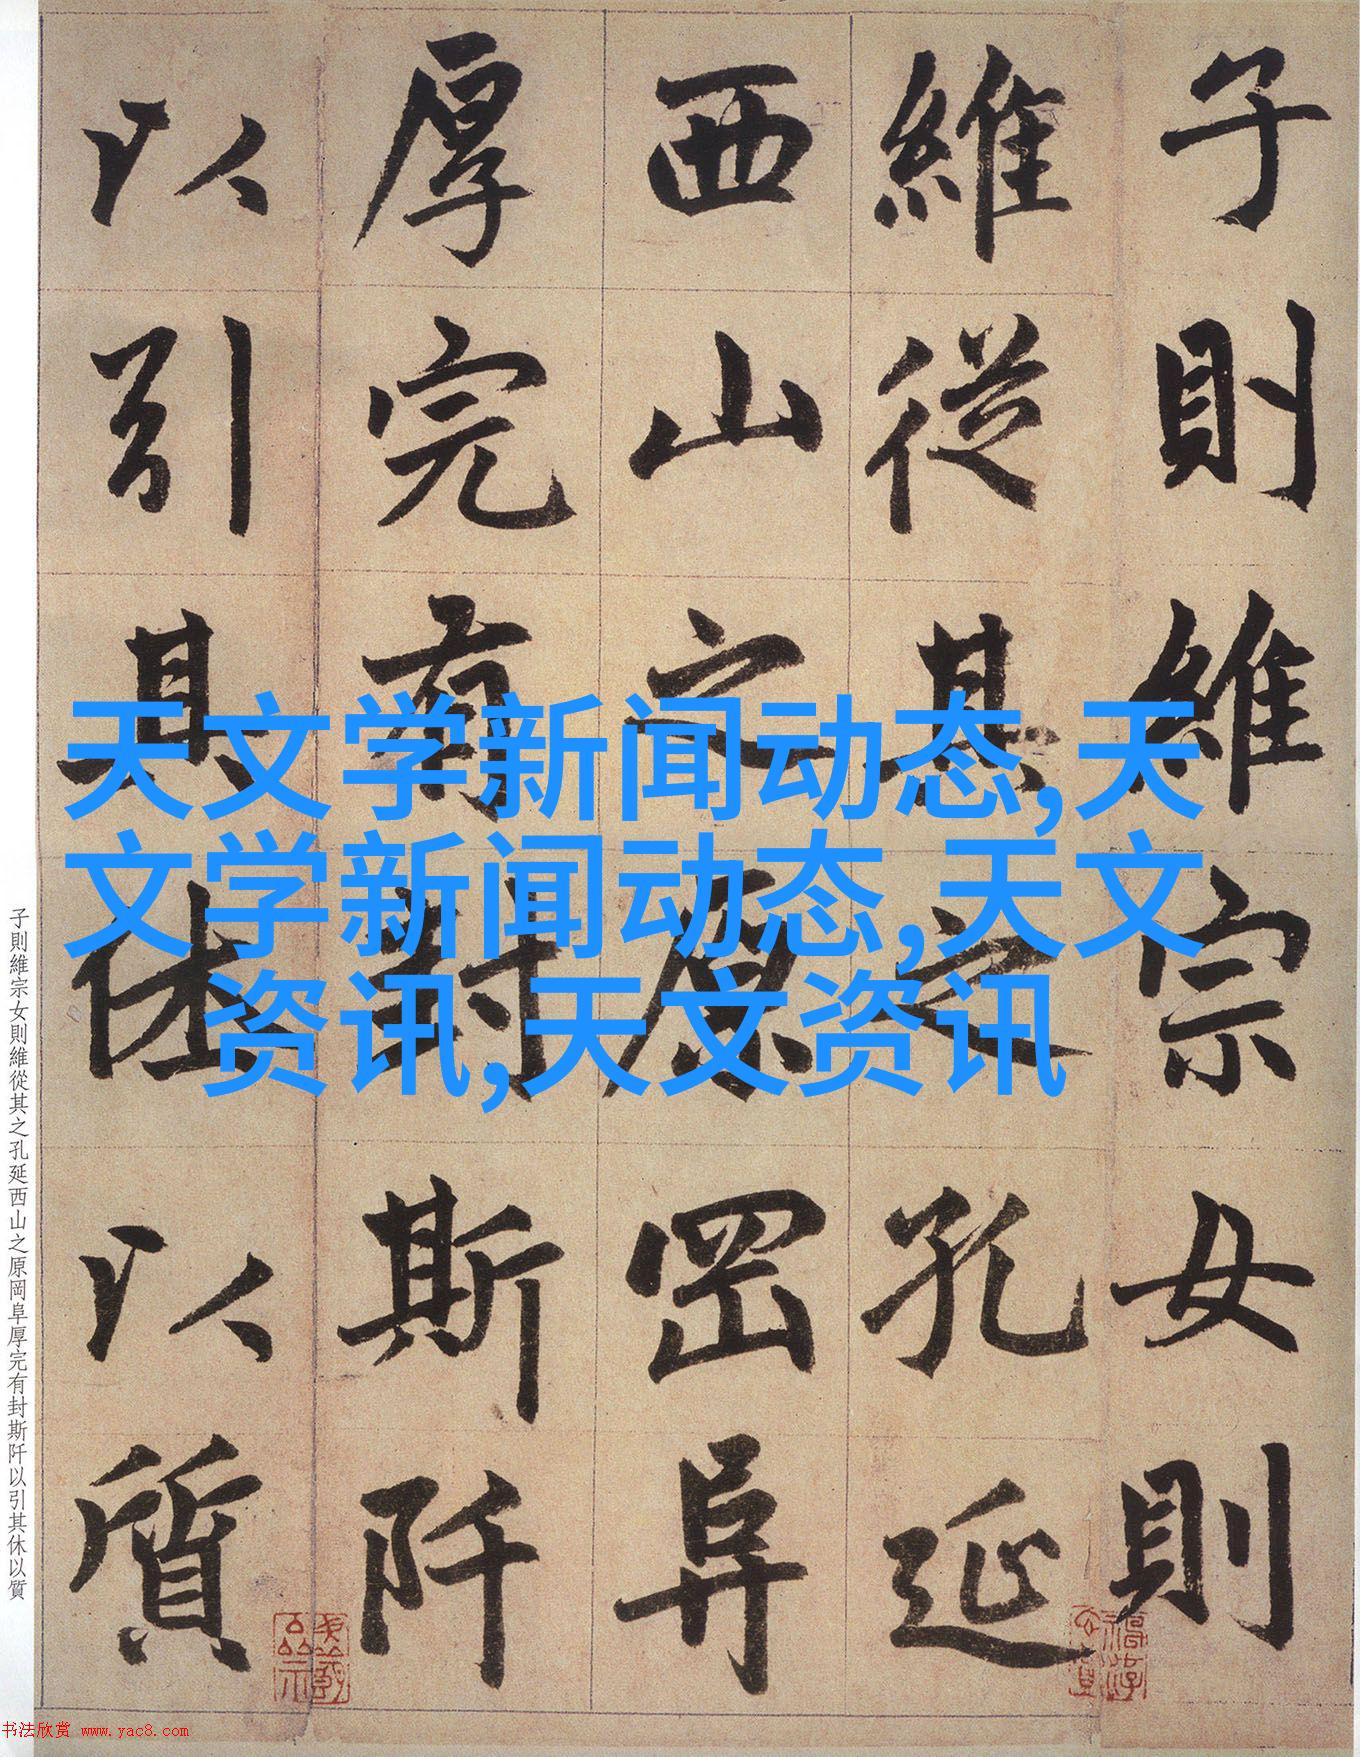 子則維宗女則
維從其之孔延
西山之原罡阜
厚完有封斯阡
以引其休以質
天文学新闻动态,天
文学新闻动态,天文
资讯,天文资讯
子則維宗女則維從其之孔延西山之原岡阜厚完有封斯阡以引其休以質
书法欣赏 www.yac8.com